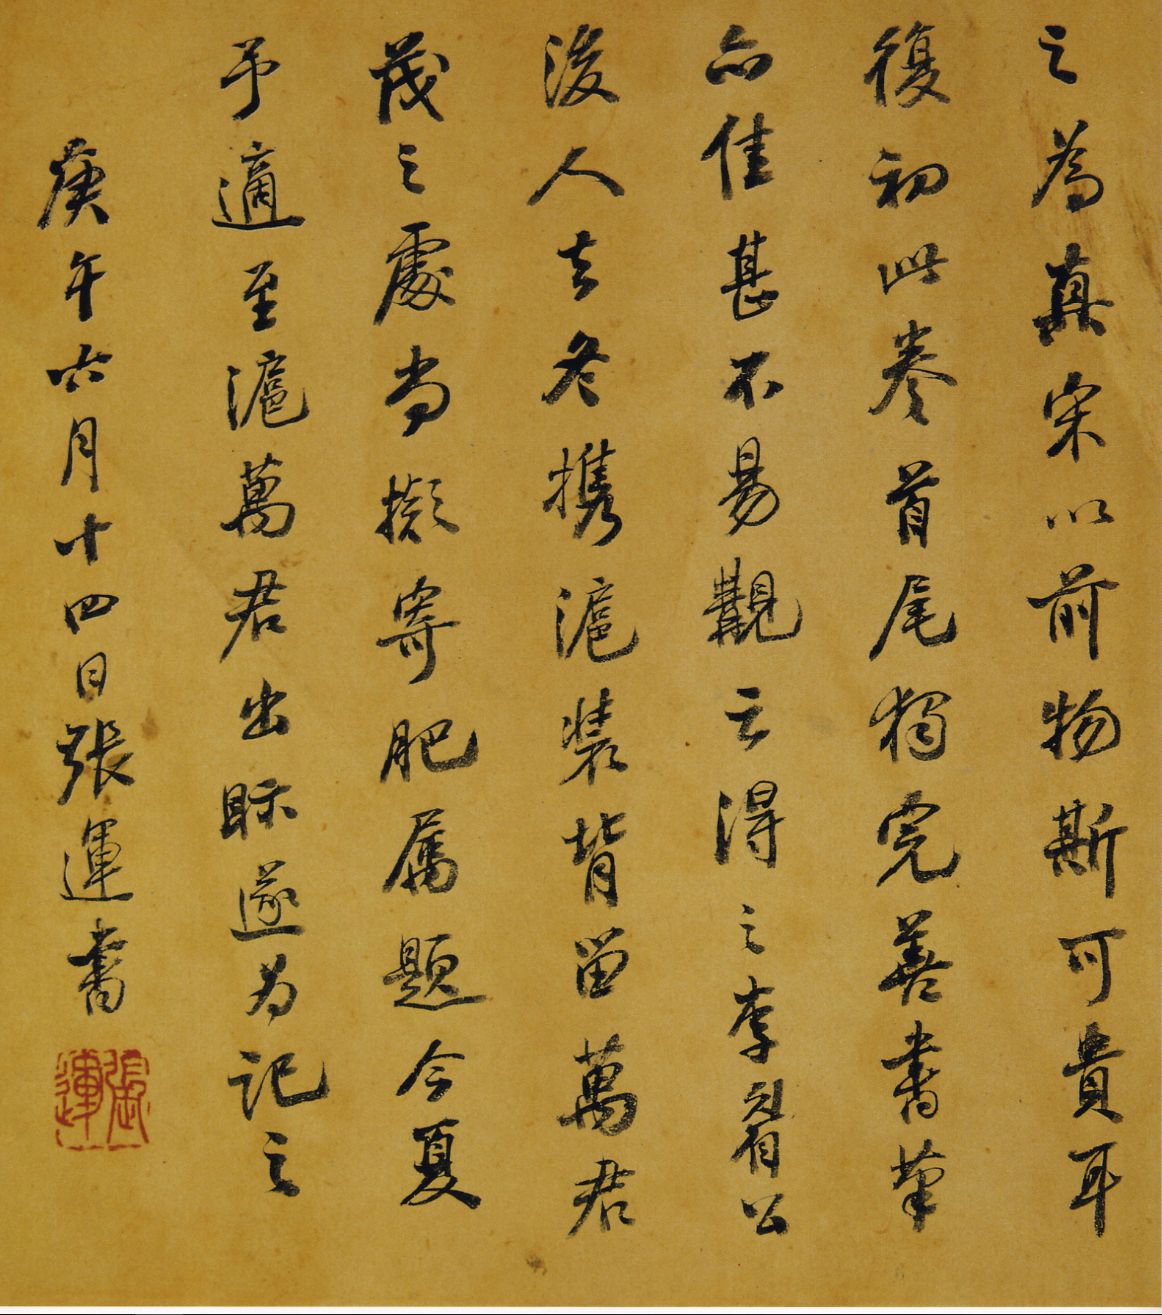 之為真宋以前物斯可貴耳
復初此卷首尾獨完善書筆
亦佳甚不易觀云得之李公
後人去冬攜滬裝背留萬君
茂之處當擬寄肥屬題今夏
予適至滬萬君出眎遂為記之
庚午六月十四日張運書
張運